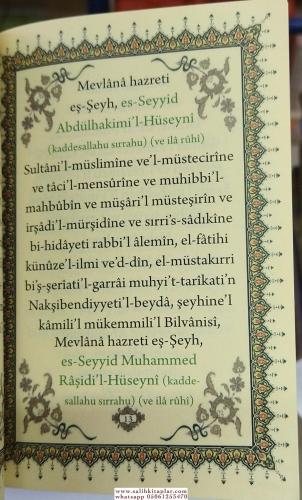 Mevlânâ hazreti
eş-Şeyh, es-Seyyid
Abdülhakimi'l-Hüseynî
(kaddesallahu sırrahu) (ve ilâ rûhî)
Sultâni'l-müslimîne ve'l-müstecirîne
ve tâci'l-mensûrîne ve muhibbi'l-
mahbûbîn ve müşâri'l müsteşirîn ve
irşâdi'l-mürşidîne ve sırri's-sâdıkîne
bi-hidâyeti rabbi'l âlemîn, el-fâtihi
künûze'l-ilmi ve'd-dîn, el-müstakırri
bi'ş-şeriati'l-garrâi muhyi't-tarîkati'n
Nakşibendiyyeti'l-beydâ, şeyhine'l
kâmili'l mükemmili'l Bilvânisî,
Mevlânâ hazreti eş-Şeyh,
es-Seyyid Muhammed
Râşidi'l-Hüseynî (kadde-
sallahu sırrahu) (ve ilâ rûhî)
13
www.salihkitaplar.com
whatsapp 05061253470